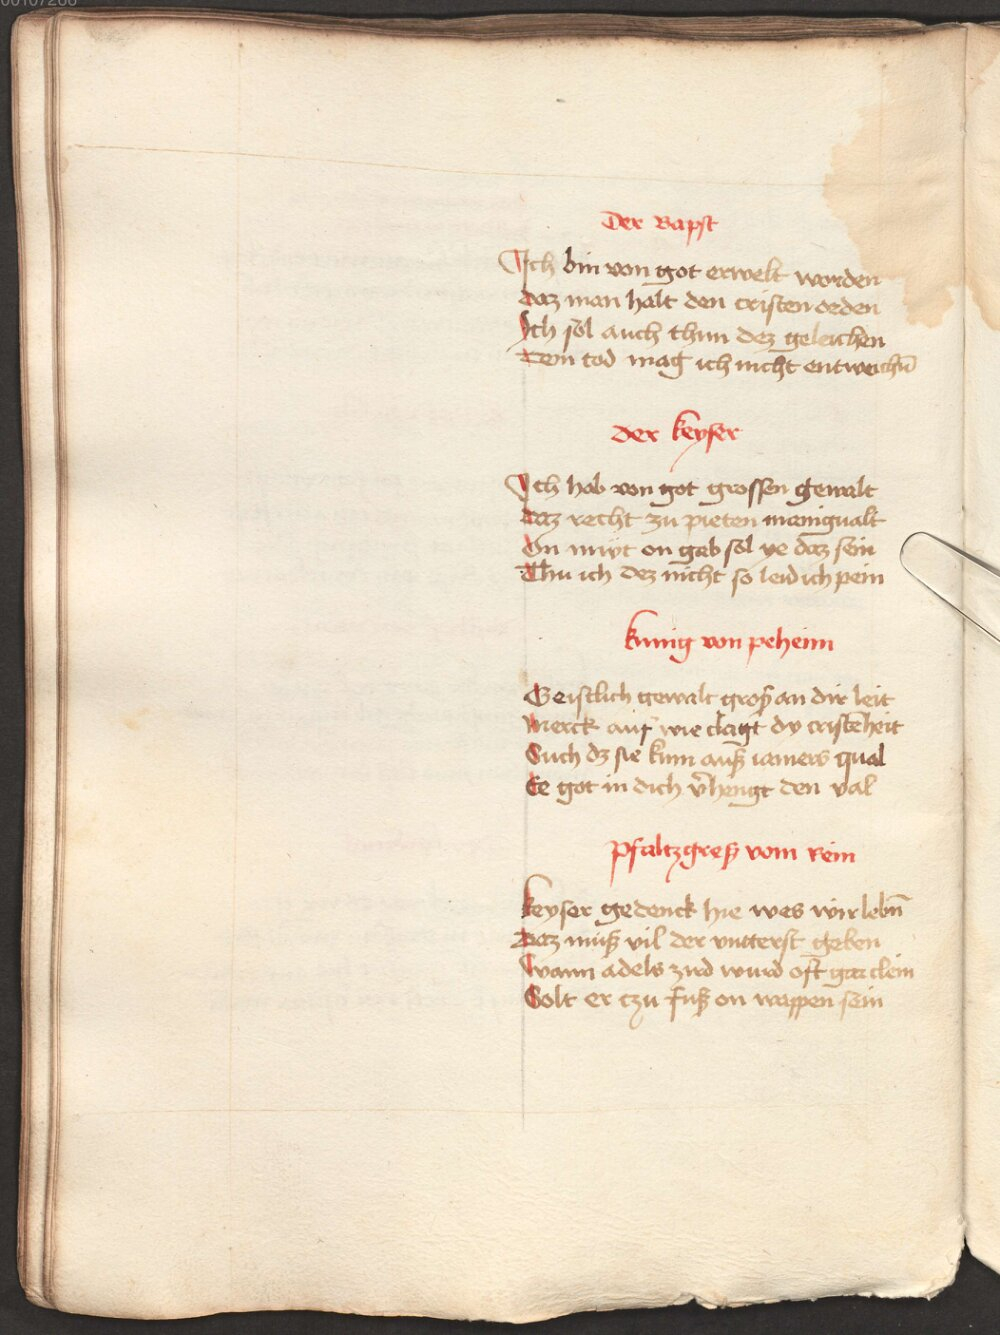 00107266
Der Bapst
Ich bin von got erwelt worden
Daz man halt den cristen orden
Ich sol auch thun dez geleichen
Dem tod mag ich nicht entweichñ
Der keyser
Ich hab von got grossen gewalt
Daz recht zu pieten manigualt
On miyt on gab sol ye daz sein
Thu ich dez nicht so leid ich pein
kunig von peheim
Geistlich gewalt groß an dir leit
Merck auf wie clagt dy cristẽheit
Such dz sie kum auß iamers qual
Ee got in dich v̄hengt den val
Pfaltzgreff vom Rein
Keyser gedenck hie wes wir lebñ
Daz muß vil der vntterst geben
Wann adels zird wurd oft gar clein
Solt er czu fuß on wappen sein